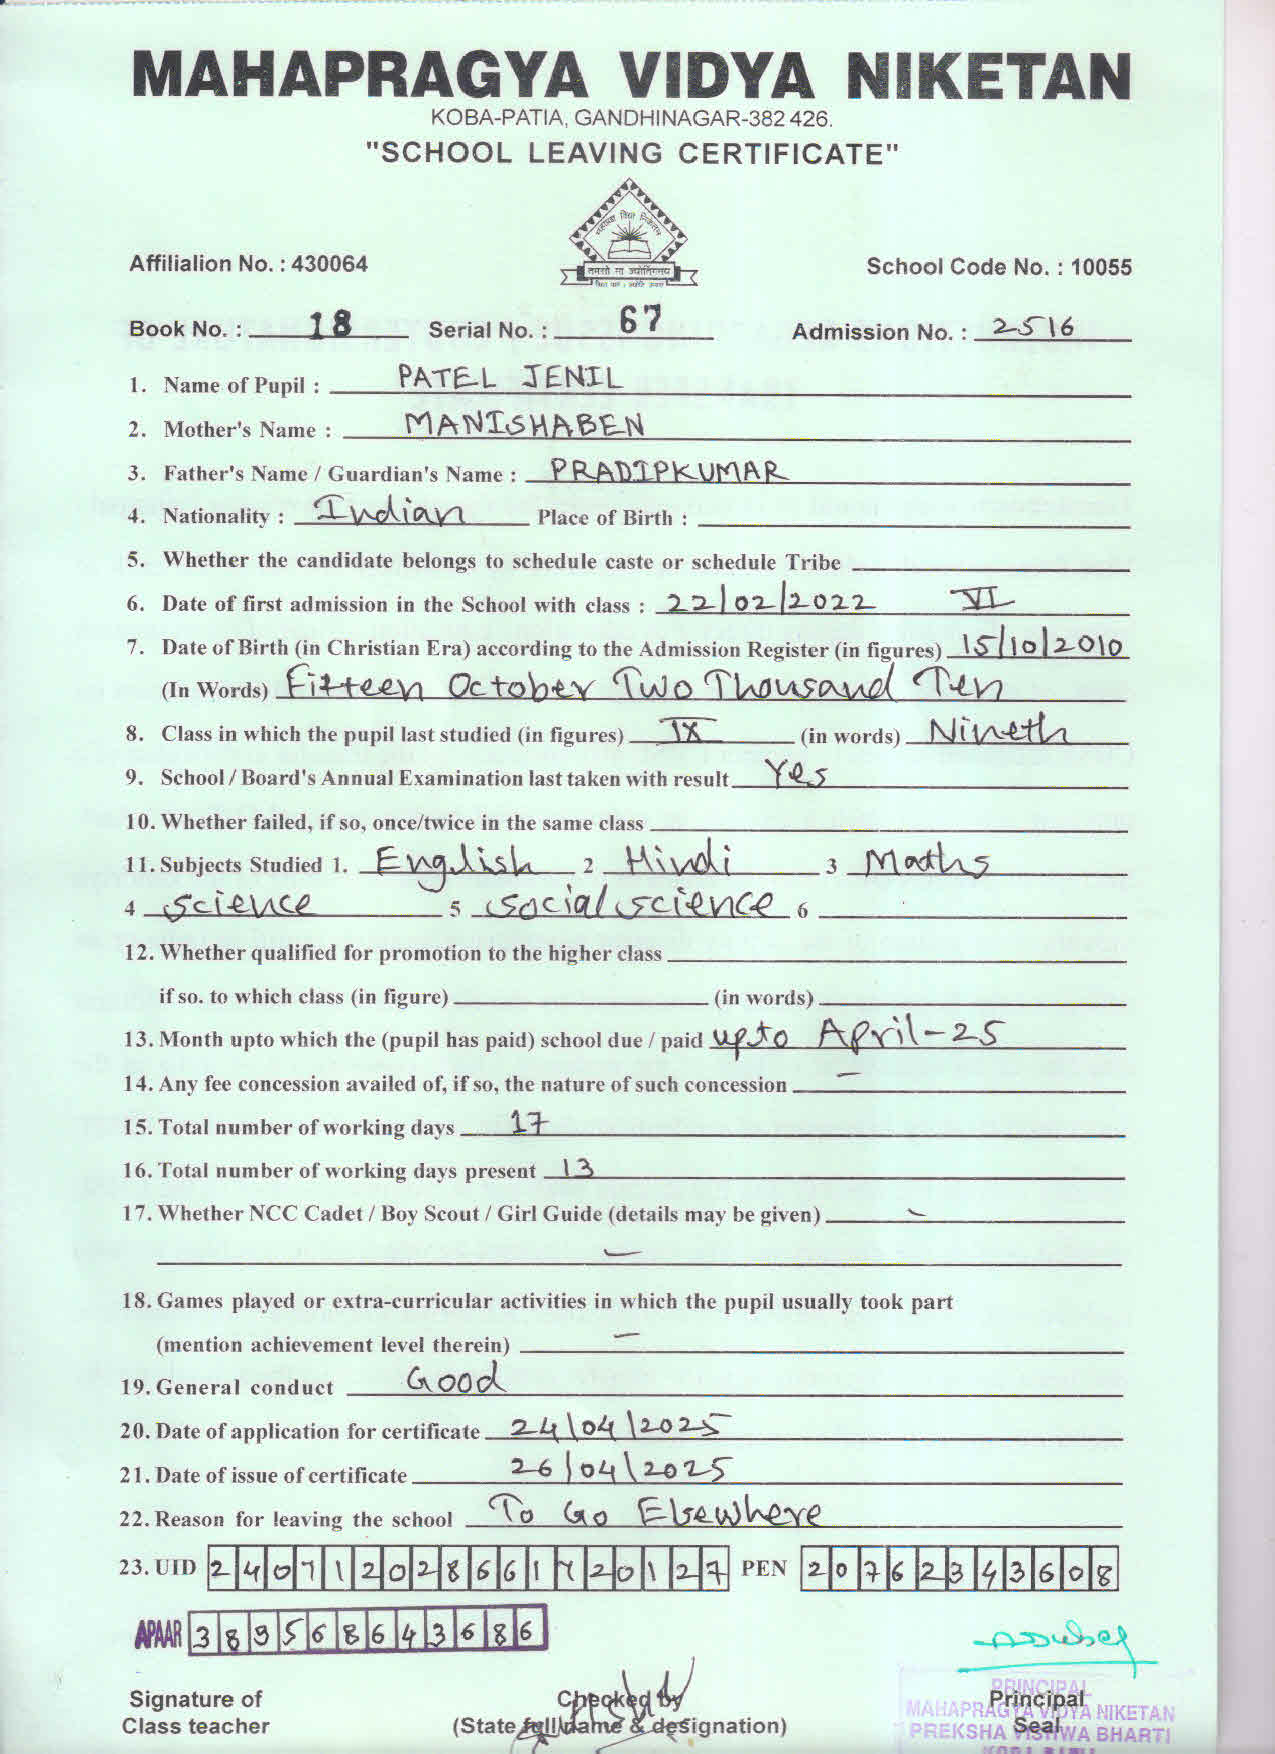 MAHAPRAGYA VIDYA NIKETAN
KOBA-PATIA, GANDHINAGAR-382 426.
"SCHOOL LEAVING CERTIFICATE"
तमसो मा ज्योतिर्गमय
Affilialion No. : 430064 School Code No. : 10055
Book No. : 18 Serial No. : 67 Admission No. : 2516
1. Name of Pupil : PATEL JENIL
2. Mother's Name : MANISHABEN
3. Father's Name / Guardian's Name : PRADIPKUMAR
4. Nationality : Indian Place of Birth :
5. Whether the candidate belongs to schedule caste or schedule Tribe
6. Date of first admission in the School with class : 22/02/2022 VI
7. Date of Birth (in Christian Era) according to the Admission Register (in figures) 15/10/2010
(In Words) Fifteen October Two Thousand Ten
8. Class in which the pupil last studied (in figures) IX (in words) Nineth
9. School / Board's Annual Examination last taken with result Yes
10. Whether failed, if so, once/twice in the same class
11. Subjects Studied 1. English 2 Hindi 3 Maths
4 Science 5 Social science 6
12. Whether qualified for promotion to the higher class
if so. to which class (in figure) (in words)
13. Month upto which the (pupil has paid) school due / paid upto April-25
14. Any fee concession availed of, if so, the nature of such concession -
15. Total number of working days 17
16. Total number of working days present 13
17. Whether NCC Cadet / Boy Scout / Girl Guide (details may be given) -
-
18. Games played or extra-curricular activities in which the pupil usually took part
(mention achievement level therein) -
19. General conduct Good
20. Date of application for certificate 24/04/2025
21. Date of issue of certificate 26/04/2025
22. Reason for leaving the school To Go Elsewhere
23. UID 240712028661720127 PEN 20762343608
APAAR 389568643686
Signature of Checked by Principal
Class teacher (State full name & designation) Seal
PRINCIPAL
MAHAPRAGYA VIDYA NIKETAN
PREKSHA VISHWA BHARTI